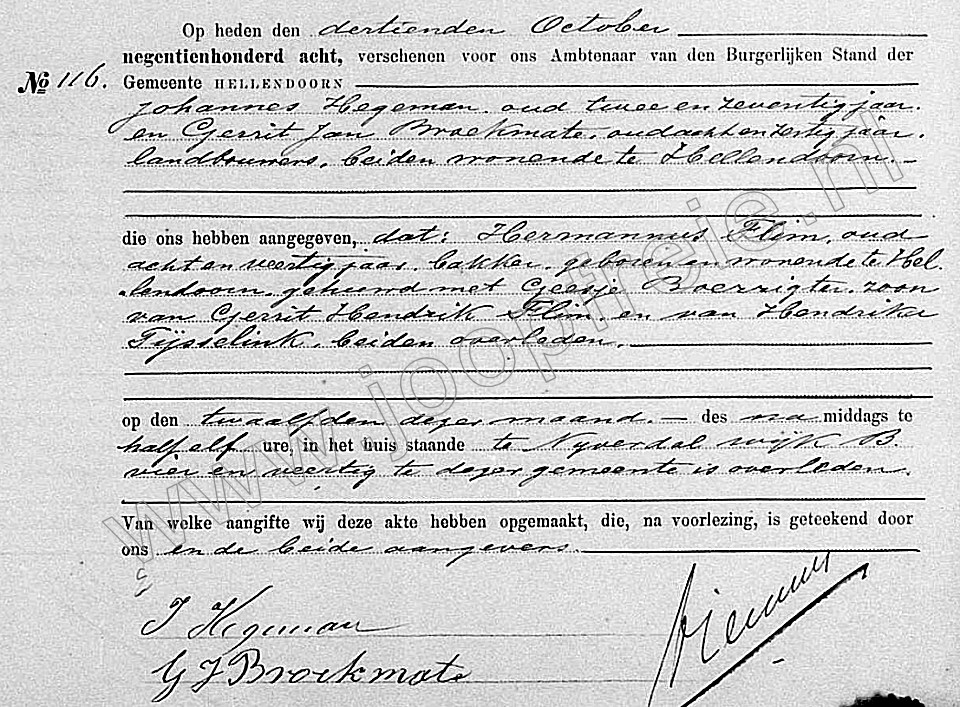 Op heden den dertienden October
negentienhonderd acht, verschenen voor ons Ambtenaar van den Burgerlijken Stand der
No 116. Gemeente HELLENDOORN
Johannes Hegeman, oud twee en zeventig jaar.
en Gerrit Jan Broekmate, oud acht en zestig jaar,
landbouwers, beiden wonende te Hellendoorn.
die ons hebben aangegeven, dat: Hermannus Flim, oud
acht en veertig jaar, bakker, geboren en wonende te Hel-
lendoorn, gehuwd met Geesje Boerrigter, zoon
van Gerrit Hendrik Flim, en van Hendrika
Tijsselink, beiden overleden,
op den twaalfden dezer maand. — des na middags te
half elf ure, in het huis staande te Nyverdal wijk B.
vier en veertig te dezer gemeente is overleden.
Van welke aangifte wij deze akte hebben opgemaakt, die, na voorlezing, is geteekend door
ons en de beide aangevers.
J Hegeman
G J Broekmate
www.joopreie.nl